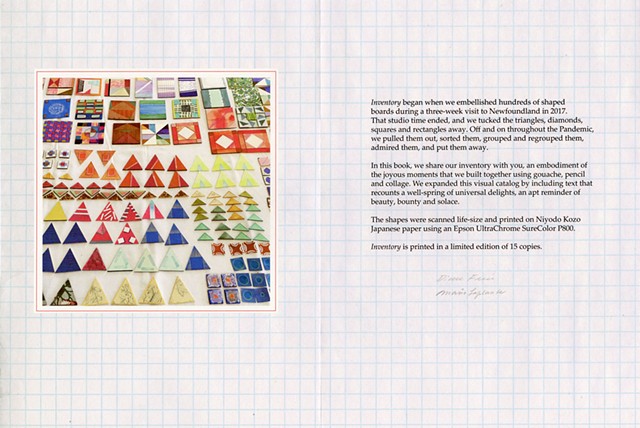 Inventory began when we embellished hundreds of shaped
boards during a three-week visit to Newfoundland in 2017.
That studio time ended, and we tucked the triangles, diamonds,
squares and rectangles away. Off and on throughout the Pandemic,
we pulled them out, sorted them, grouped and regrouped them,
admired them, and put them away.
In this book, we share our inventory with you, an embodiment of
the joyous moments that we built together using gouache, pencil
and collage. We expanded this visual catalog by including text that
recounts a well-spring of universal delights, an apt reminder of
beauty, bounty and solace.
The shapes were scanned life-size and printed on Niyodo Kozo
Japanese paper using an Epson UltraChrome SureColor P800.
Inventory is printed in a limited edition of 15 copies.